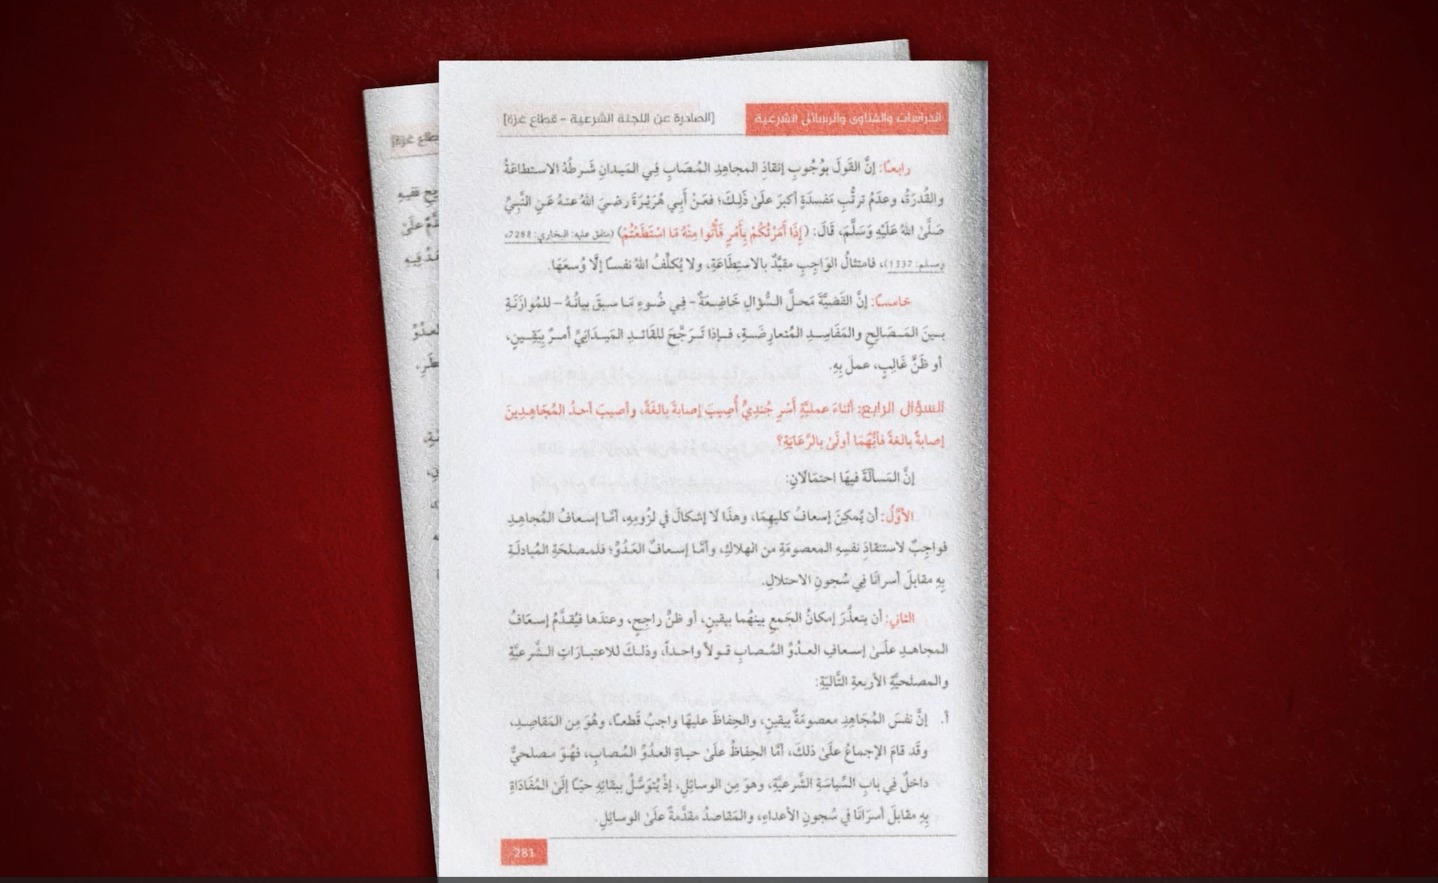 الدراسات والفتاوى والرسائل الشرعية
[الصادرة عن اللجنة الشرعية – قطاع غزة]
رابعـًا: إنَّ القَولَ بوُجُوبِ إنقاذِ المجاهِدِ المُصَابِ فِي المَيدانِ شَرطُهُ الاستطاعَةُ
والقُدرَةُ، وعدَمُ ترتُّبِ مَفسدَةٍ أكبرَ علَىٰ ذَلِكَ؛ فعَنْ أَبِي هُرَيْرَةَ رضيَ اللهُ عنهُ عَنِ النَّبِيِّ
صَلَّىٰ اللهُ عَلَيْهِ وَسَلَّمَ، قَالَ: (إِذَا أَمَرْتُكُمْ بِأَمْرٍ فَأْتُوا مِنْهُ مَا اسْتَطَعْتُمْ) (متفق عليه: البخاري: 7288،
ومسلم: 1337)، فامتثالُ الوَاجِبِ مقيَّدٌ بالاستِطَاعَةِ، ولا يُكلِّفُ اللهُ نفسـًا إلَّا وُسعَهَا.
خامسـًا: إنَّ القَضيَّةَ مَحلَّ السُّؤالِ خَاضِعَةٌ – فِي ضُوءِ مَا سبقَ بيانُهُ – للمُوازَنَةِ
بـينَ المَـصَالِحِ والمَفَاسِـدِ المُتعارِضَـةِ، فـإذا تَـرَجَّحَ للقَائـدِ المَيـدَانِيِّ أمـرٌ بِيَقِـينٍ،
أو ظَنٍّ غَالِبٍ، عملَ بِهِ.
السؤال الرابع: أثناءَ عمليَّةِ أَسْرِ جُنديٍّ أُصِيبَ إصابَةً بالغَةً، وأصيبَ أحدُ المُجَاهِدِينَ
إصابةً بالغةً فأيُّهُمَا أولَىٰ بالرِّعَايَةِ؟
إنَّ المَسألَةَ فيهَا احتمَالَانِ:
الأوَّلُ: أن يُمكِنَ إسعافُ كليهِمَا، وهذَا لَا إشكالَ فِي لزُومِهِ، أمَّا إسعافُ المُجاهِدِ
فواجِبٌ لاستنقاذِ نفسِهِ المعصومَةِ من الهلاكِ، وأمَّا إسعافُ العَدُوِّ؛ فلمصلحَةِ المُبادلَةِ
بِهِ مقابلَ أسرانَا فِي سُجونِ الاحتلالِ.
الثاني: أن يتعذَّرَ إمكانُ الجَمعِ بينهُما بيقينٍ، أو ظنٍّ راجِحٍ، وعندَها فيُقدَّمُ إسعَافُ
المجاهـدِ علَـىٰ إسـعافِ العـدُوِّ المُـصابِ قـولًا واحـدًا، وذلـكَ للاعتبـارَاتِ الـشَّرعيَّةِ
والمصلحيَّةِ الأربعةِ التَّاليَةِ:
أ. إنَّ نفسَ المُجَاهِدِ معصومَةٌ بيقينٍ، والحِفاظَ عليهَا واجبٌ قَطعـًا، وهُوَ مِن المَقاصِـدِ،
وقَد قامَ الإجماعُ علَىٰ ذلكَ، أمَّا الحِفاظُ علَىٰ حياةِ العـدُوِّ المُـصابِ، فهُـوَ مـصلحيٌّ
داخلٌ فِي بابِ السِّياسَةِ الشَّرعيَّةِ، وهوَ مِن الوسائِلِ، إذْ يُتوَسَّلُ ببقائِهِ حيـًا إلَىٰ المُفَادَاةِ
بِهِ مقابلَ أسرَانَا فِي سُجونِ الأعداءِ، والمَقاصدُ مقدَّمةٌ علَىٰ الوسائِلِ.
281